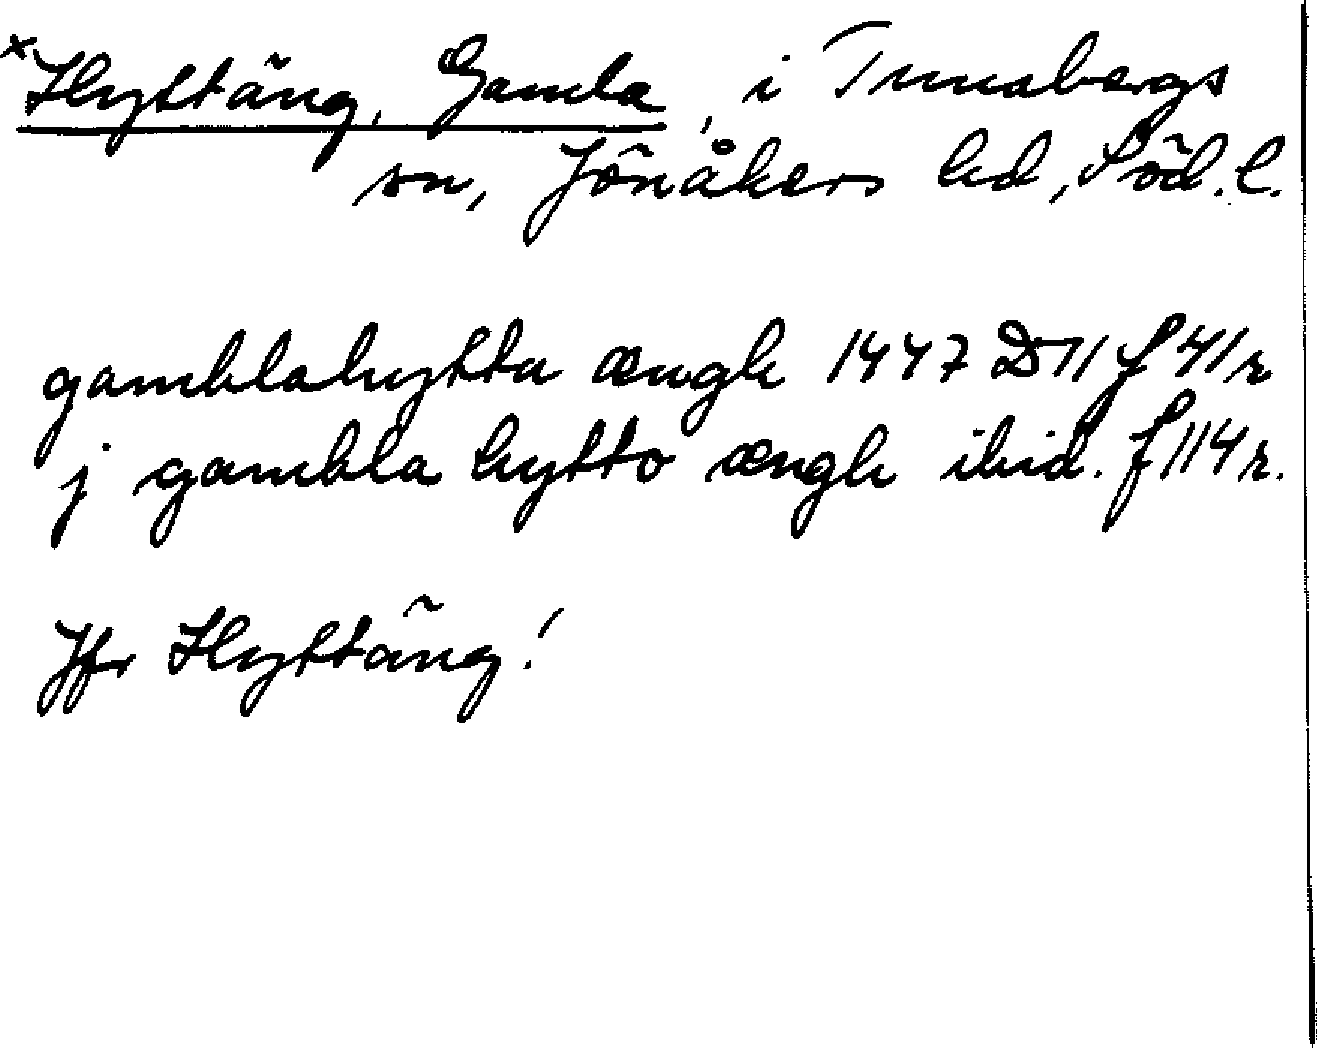 ×Hyttäng, Gamla, i Tunabergs
sn, Jönåkers hd, Söd. l.
gamblahytta ængh 1447 D 11 f 41 r
j gambla hytto ængh ibid. f 114 r.
Jfr Hyttäng!